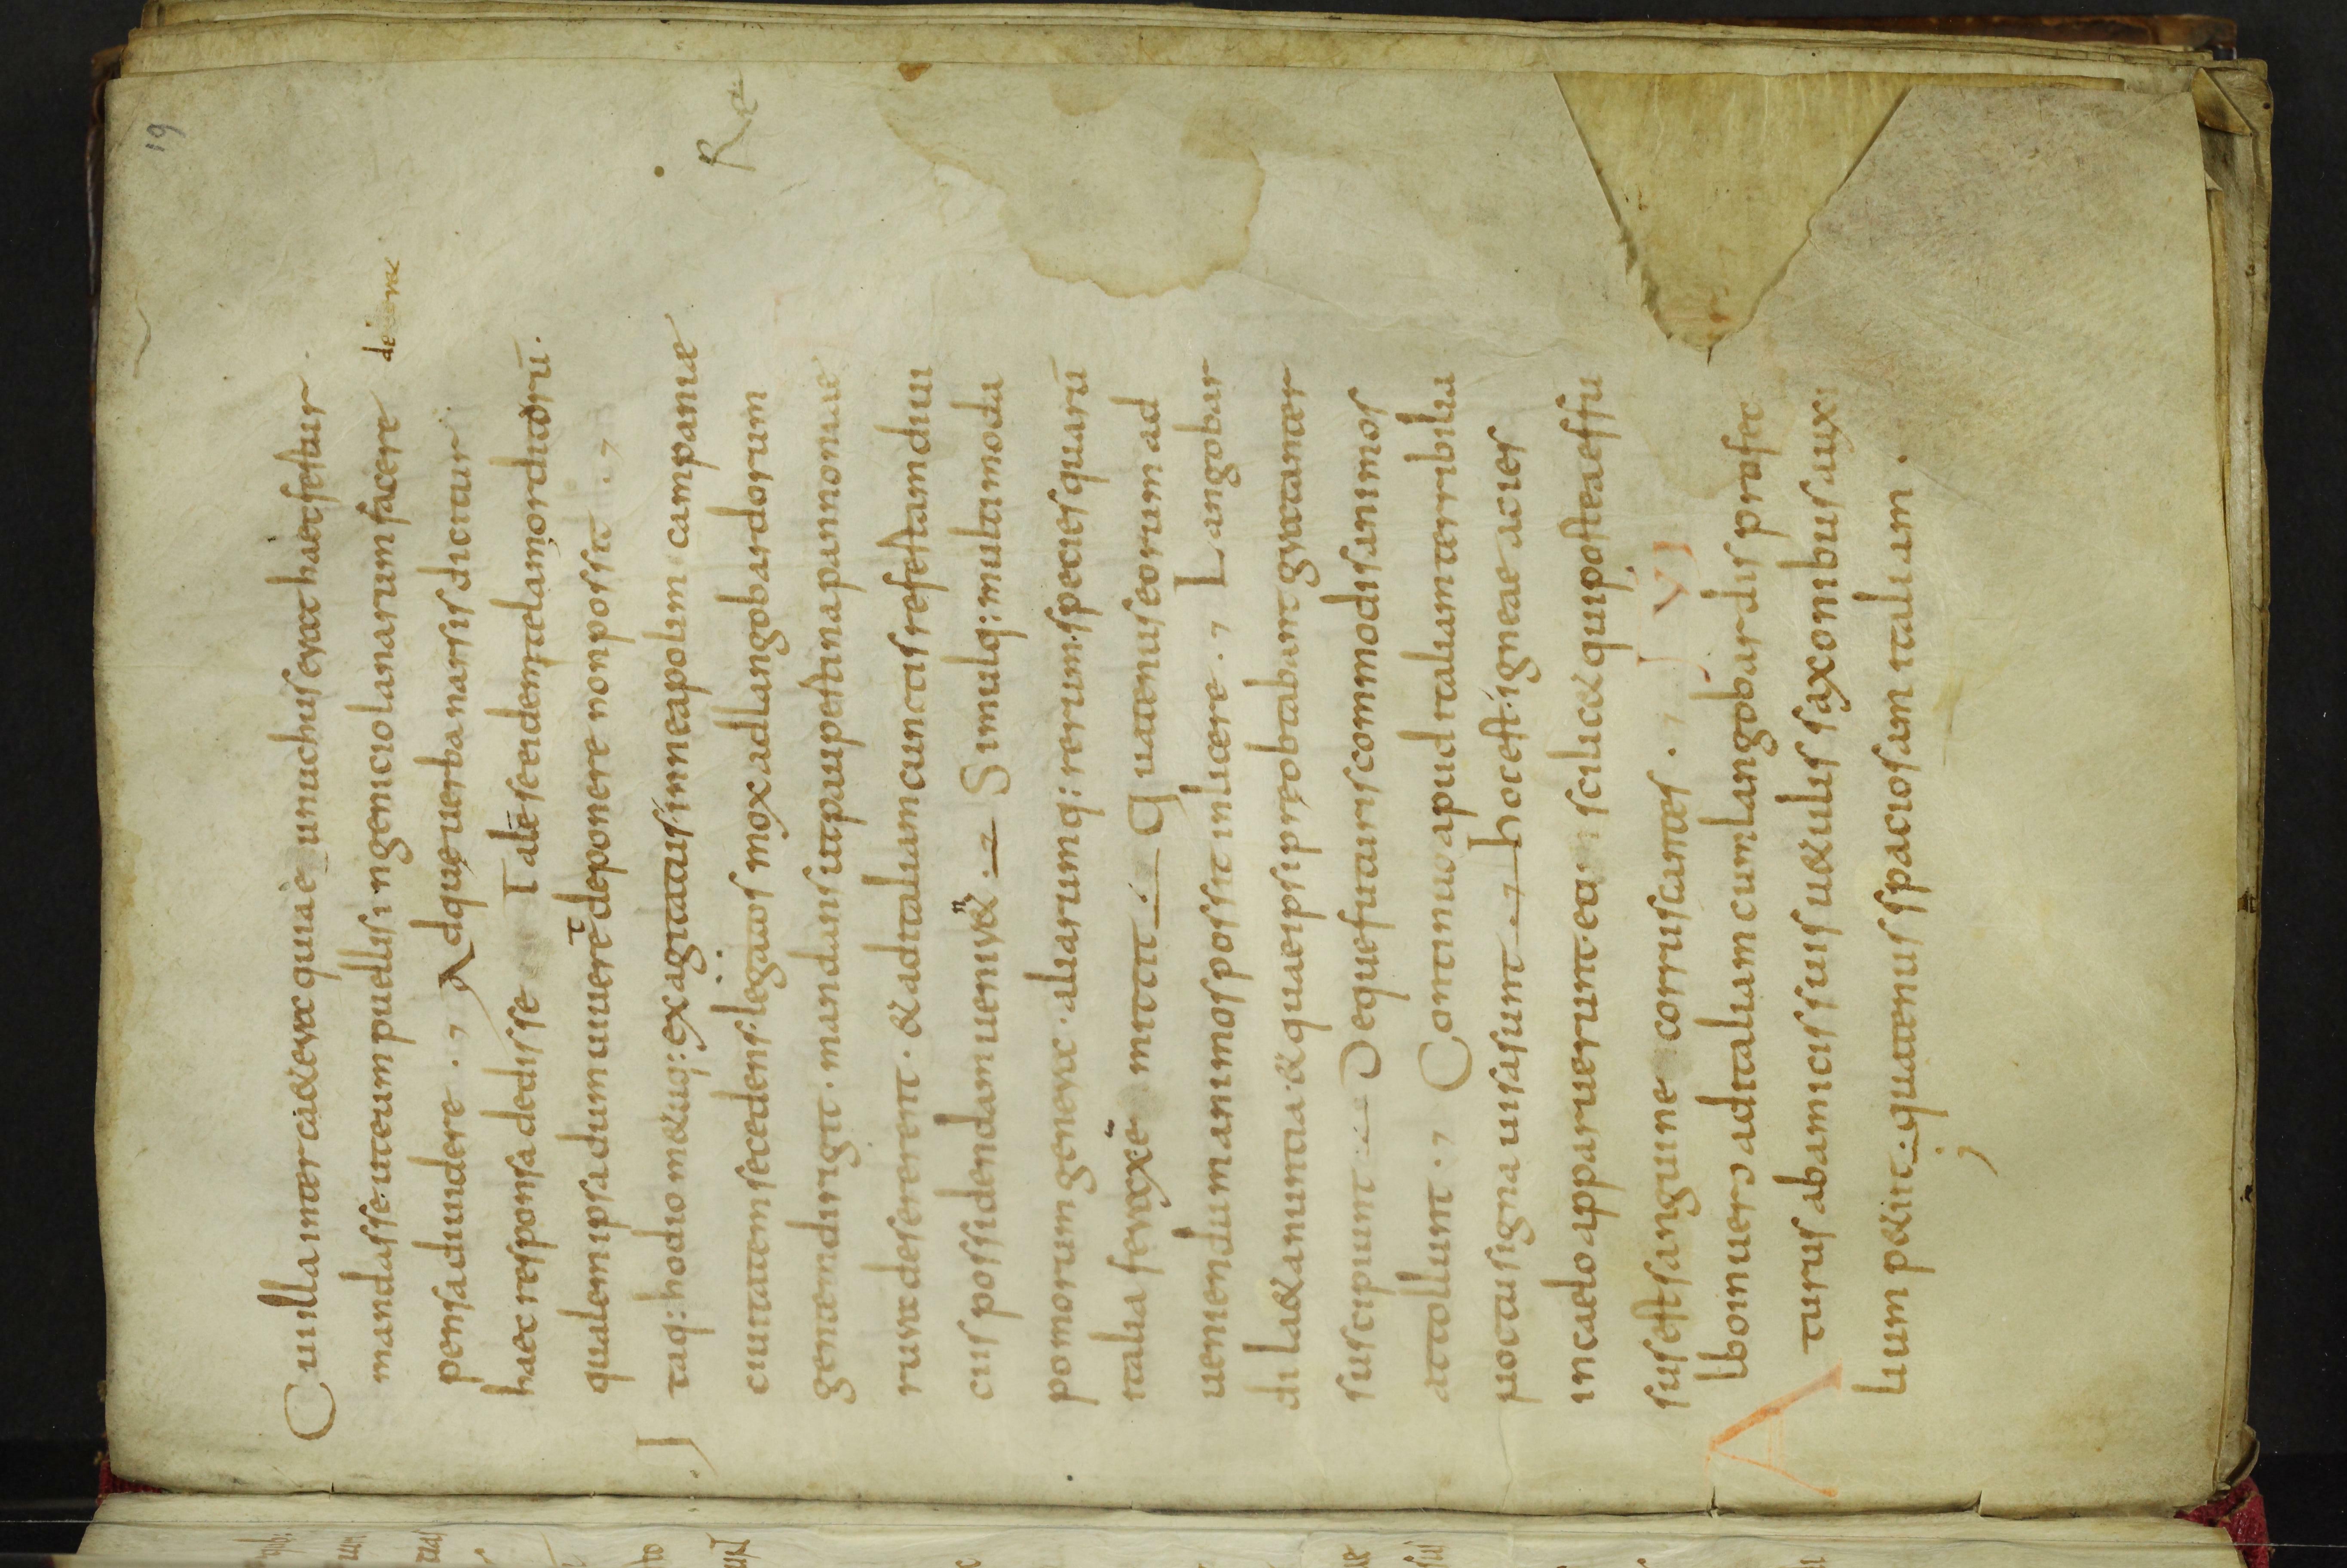 19
Cui illa inter cae&era quia eunuchus erat haec fertur
mandasse· ut eum puellis in genicio lanarum facere
pensa diuidere . , Ad quę uerba narsis dicitur
haec responsa dedisse Talē se eidem telam ordiaturū·
qualem ipsa dum uiuerēt deponere non possit . ,
Itaq; hodio m&uq; exagitatus· in neapolim campaniae
ciuitatem secedens· legatos mox ad langobardorum
gentem dirigit · mandans ut paupertina pannoniae
rura desererent · & ad italiam cunctis refertam diui
ciis possidendam uenir&n .— Simulq; multimoda
pomorum genera · aliarumq; rerum· species quarū
italia ferax ē mittit .— Quatenus eorum ad
ueniendum animos possit inlicere . , Langobar
di laeta nuntia· & quae ipsi preobtabant gratanter
suscipiunt .— Deque futuris commodis animos
attollunt . , Continuo apud italiam terribilia
noctu signa uisa sunt .,— hoc est· igneae acies
in caelo apparuerunt· eum scilic& qui postea effu
sus est sanguine corruscantes . , VI
Alboin uero ad italiam cum langobardis profec
turus ab amicis suis u&ulis saxonibus auxi
lium p&iit .— quatenus spaciosam italiam .
Rae